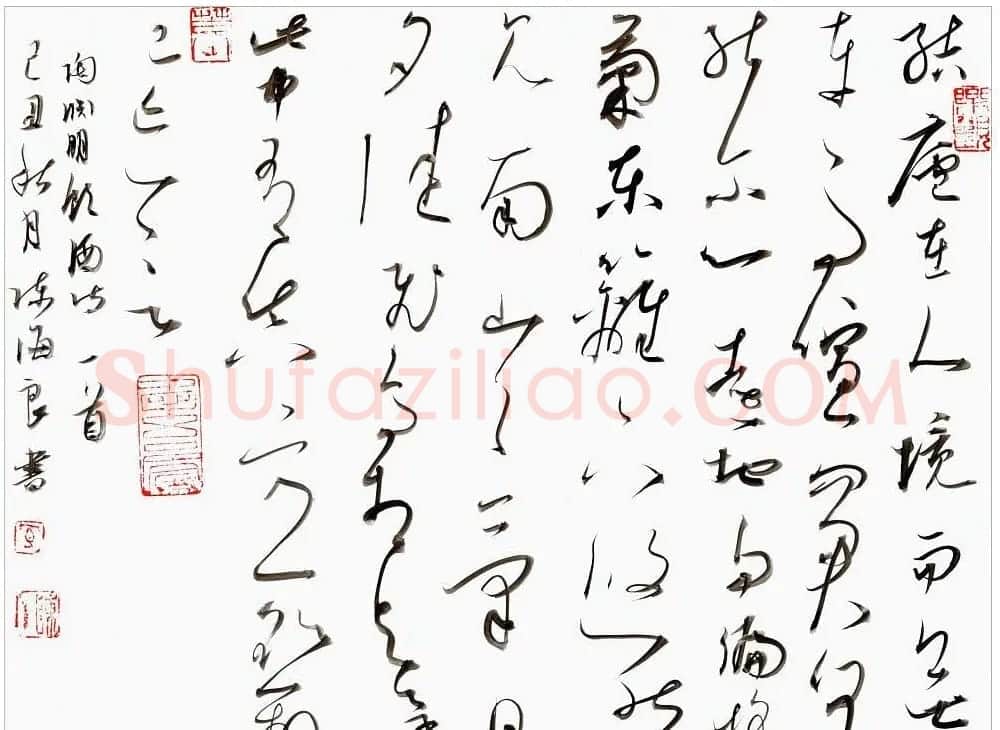 結廬在人境而無
車馬喧問君何
能尔心遠地自偏採
菊東籬下悠然
見南山山氣日
夕佳飛鳥相與還
此中有真意欲辨
已忘言
陶渊明飲酒詩一首
己丑秋月陈海良書
Shufaziliao.COM